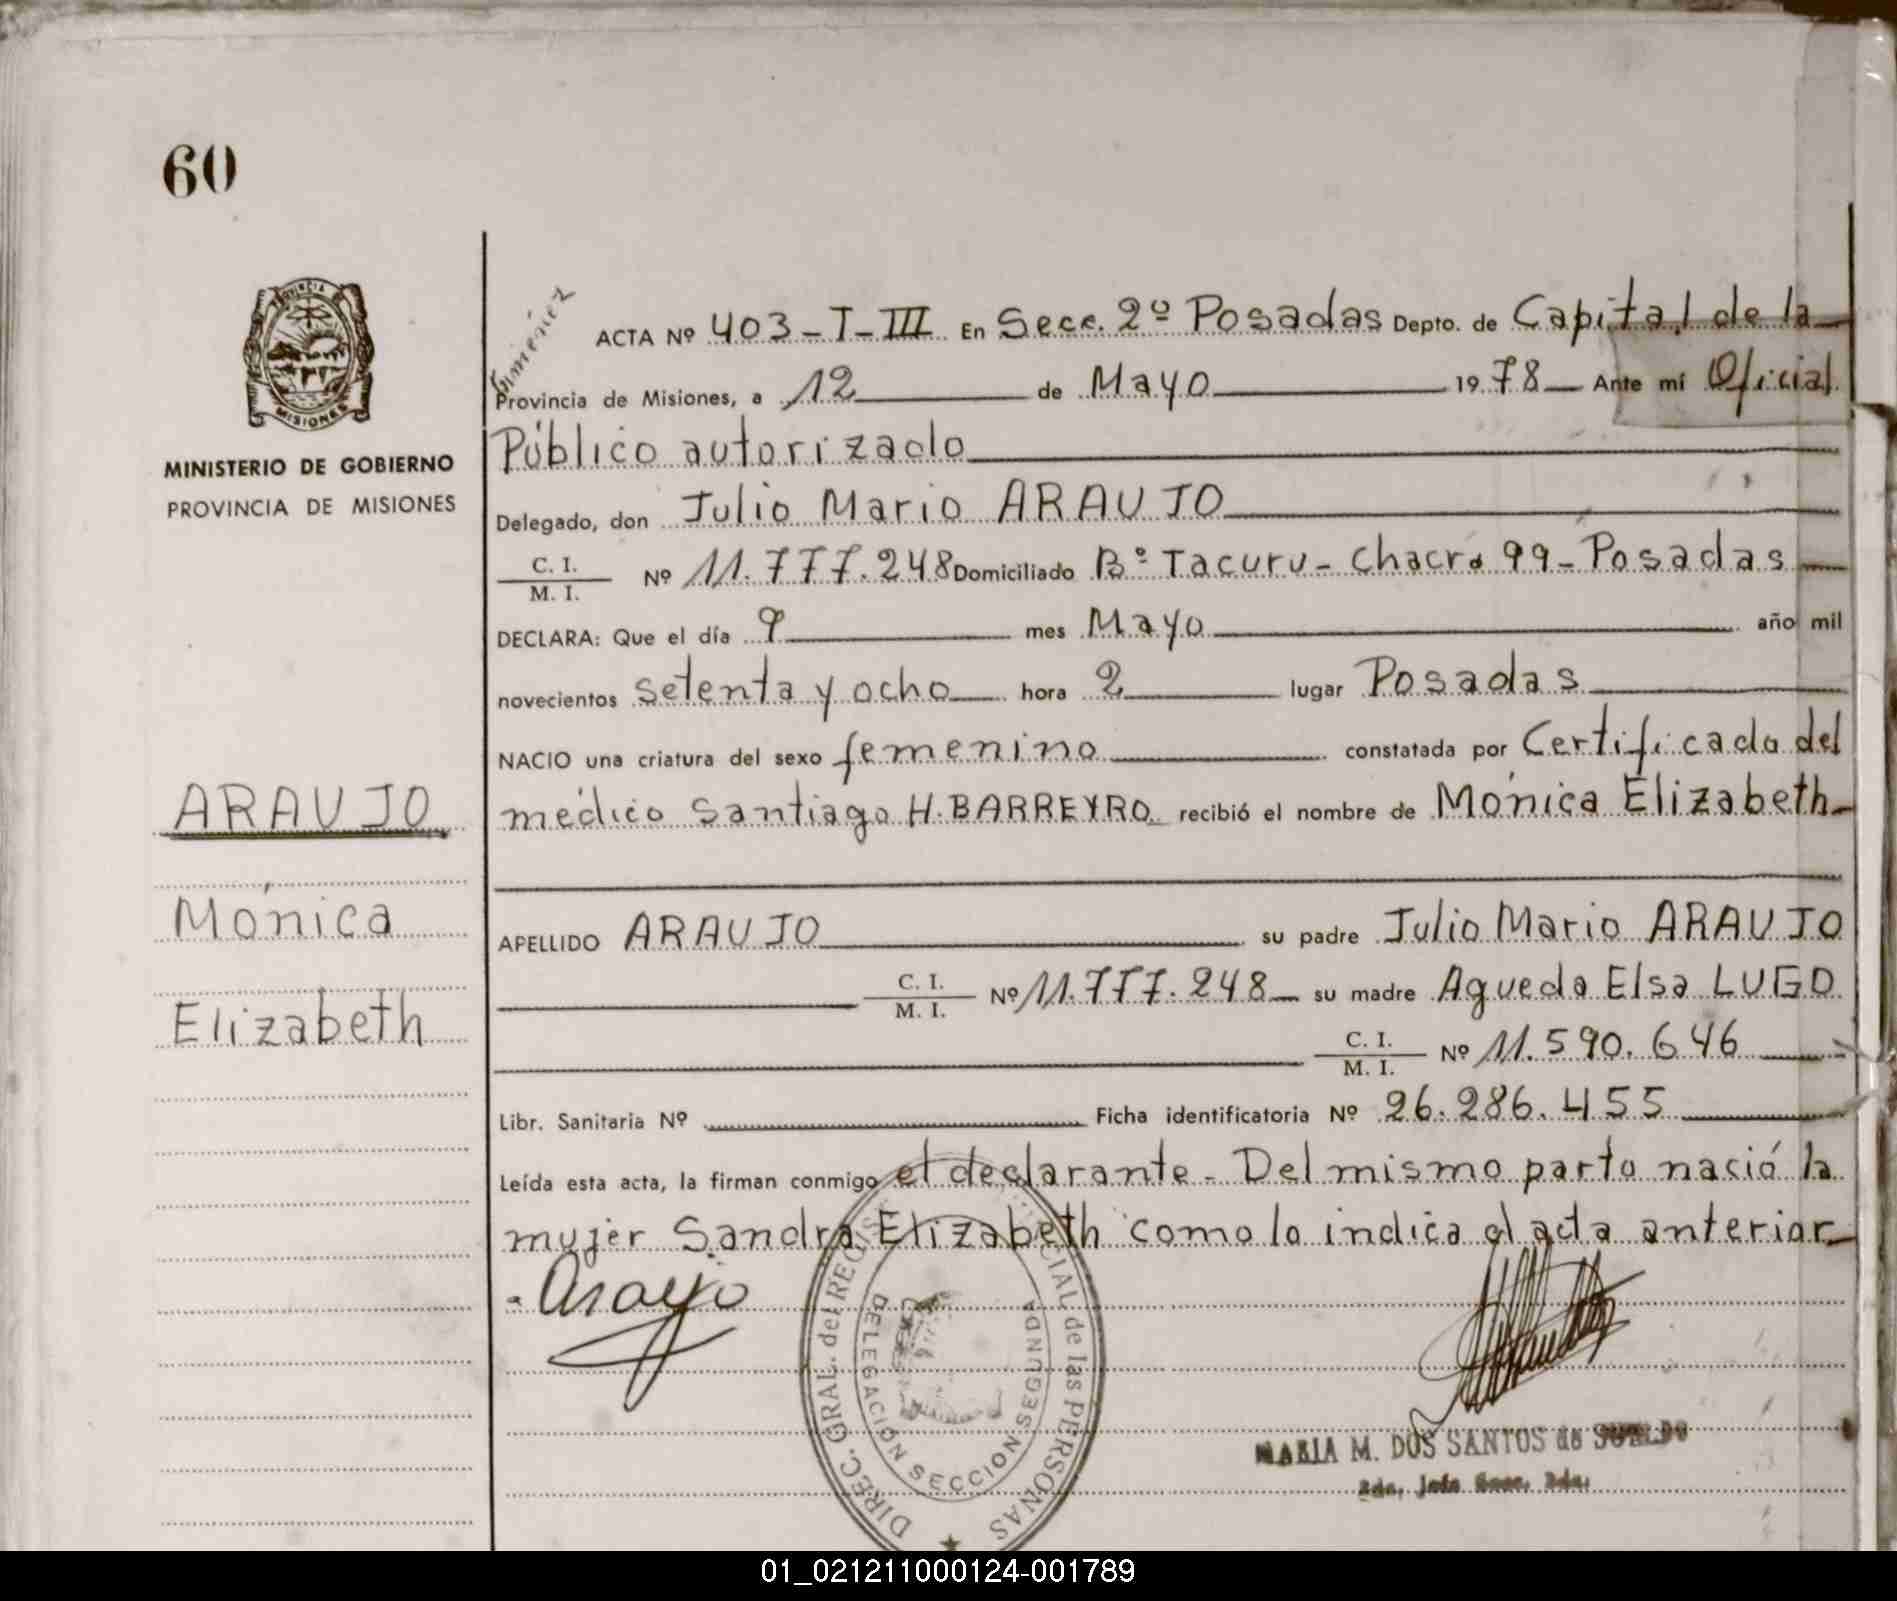 60
PROVINCIA
MISIONES
MINISTERIO DE GOBIERNO
PROVINCIA DE MISIONES
ARAUJO
Mónica
Elizabeth
Gimenez
ACTA Nº 403-T-III En Secc. 2º Posadas Depto. de Capital de la
Provincia de Misiones, a 12 de Mayo 1978 Ante mí Oficial
Público autorizado
Delegado, don Julio Mario ARAUJO
C. I.
M. I. Nº 11.777.248 Domiciliado Bº Tacuru - Chacra 99 - Posadas
DECLARA: Que el día 9 mes Mayo año mil
novecientos setenta y ocho hora 2 lugar Posadas
NACIO una criatura del sexo femenino constatada por Certificado del
médico Santiago H. BARREYRO recibió el nombre de Mónica Elizabeth
APELLIDO ARAUJO su padre Julio Mario ARAUJO
C. I.
M. I. Nº 11.777.248 su madre Agueda Elsa LUGO
C. I.
M. I. Nº 11.590.646
Libr. Sanitaria Nº Ficha identificatoria Nº 26.286.455
Leída esta acta, la firman conmigo el declarante. Del mismo parto nació la
mujer Sandra Elizabeth como lo indica el acta anterior
Araujo
DIREC. GRAL. del REGIS CIAL de las PERSONAS
DELEGACIÓN SECCION SEGUNDA
MARIA M. DOS SANTOS de
01_021211000124-001789